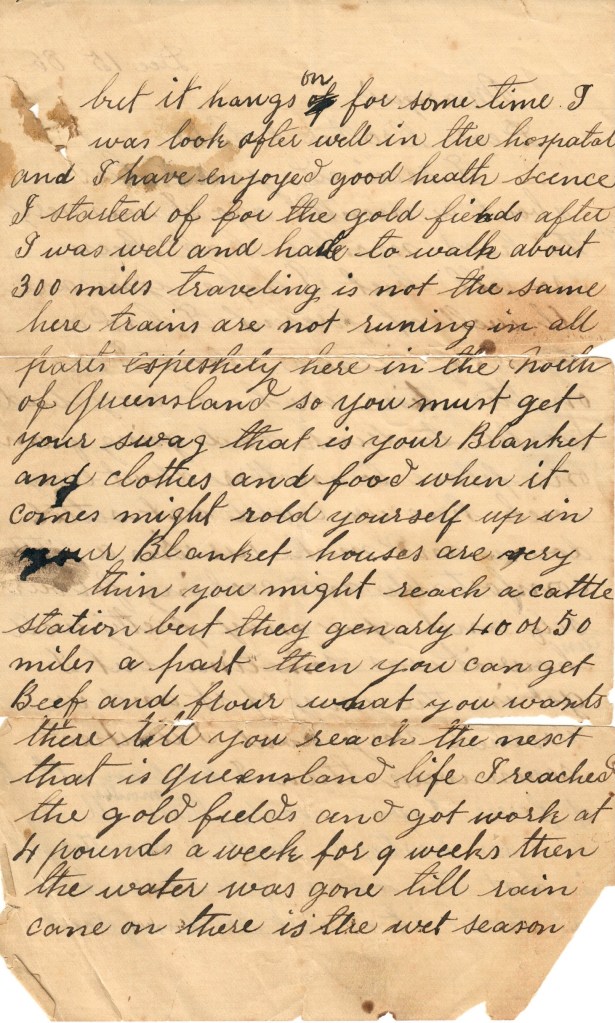 but it hangs on for some time. I
was look after well in the hospatal
and I have enjoyed good heath scence
I started of for the gold fiends after
I was well and hade to walk about
300 miles traveling is not the same
here trains are not runing in all
parts espeshely here in the North
of Queensland so you must get
your swag that is your Blanket
and clothes and food when it
comes might rold yourself up in
your Blanket houses are very
thin you might reach a cattle
station but they genarly 40 or 50
miles a part then you can get
Beef and flour what you wants
there till you reach the next
that is Queensland life I reached
the gold fields and got work at
4 pounds a week for 9 weeks then
the water was gone till rain
cane on there is the wet season